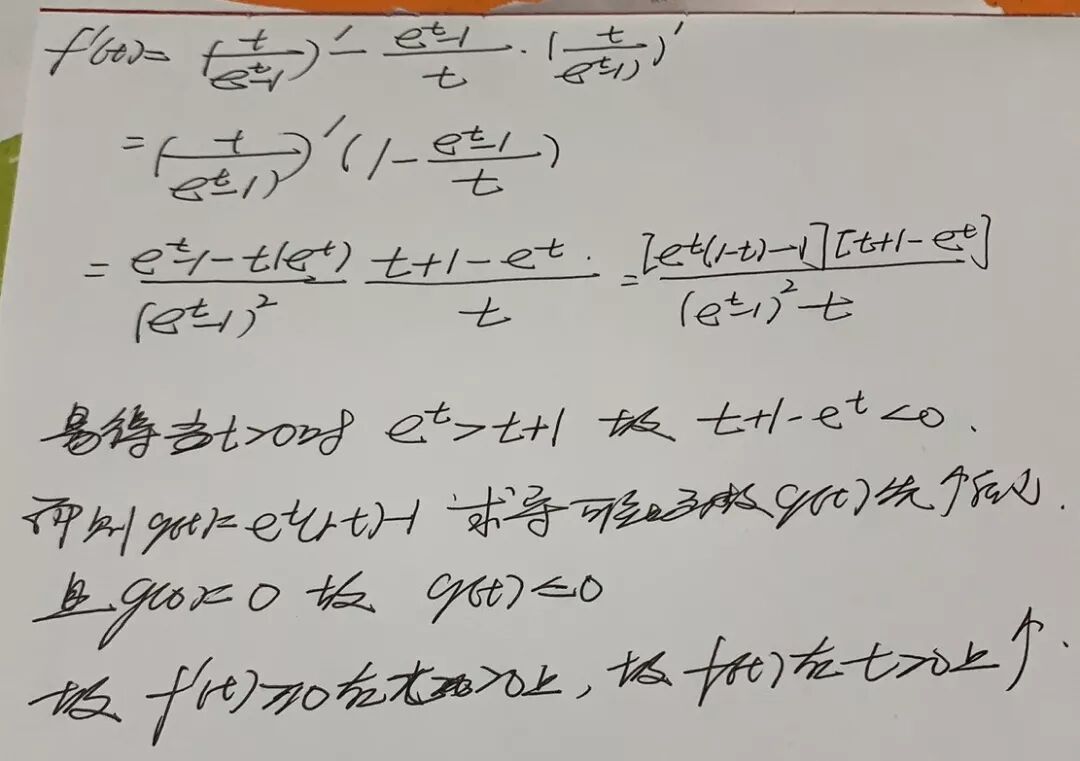 f'(t)= (t/(e^t-1))' - (e^t-1)/t · (t/(e^t-1))'
= (t/(e^t-1))' (1 - (e^t-1)/t)
= (e^t-1-t(e^t))/(e^t-1)^2 (t+1-e^t)/t = [e^t(1-t)-1][t+1-e^t]/(e^t-1)^2·t
易得当t>0时 e^t>t+1 故 t+1-e^t<0.
g(t)=e^t(1-t)-1 求导可 故g(t)先↑后↓.
且g(0)=0 故 g(t)≤0
故 f'(t)≥0在t>0上, 故f(t)在t>0上↑.